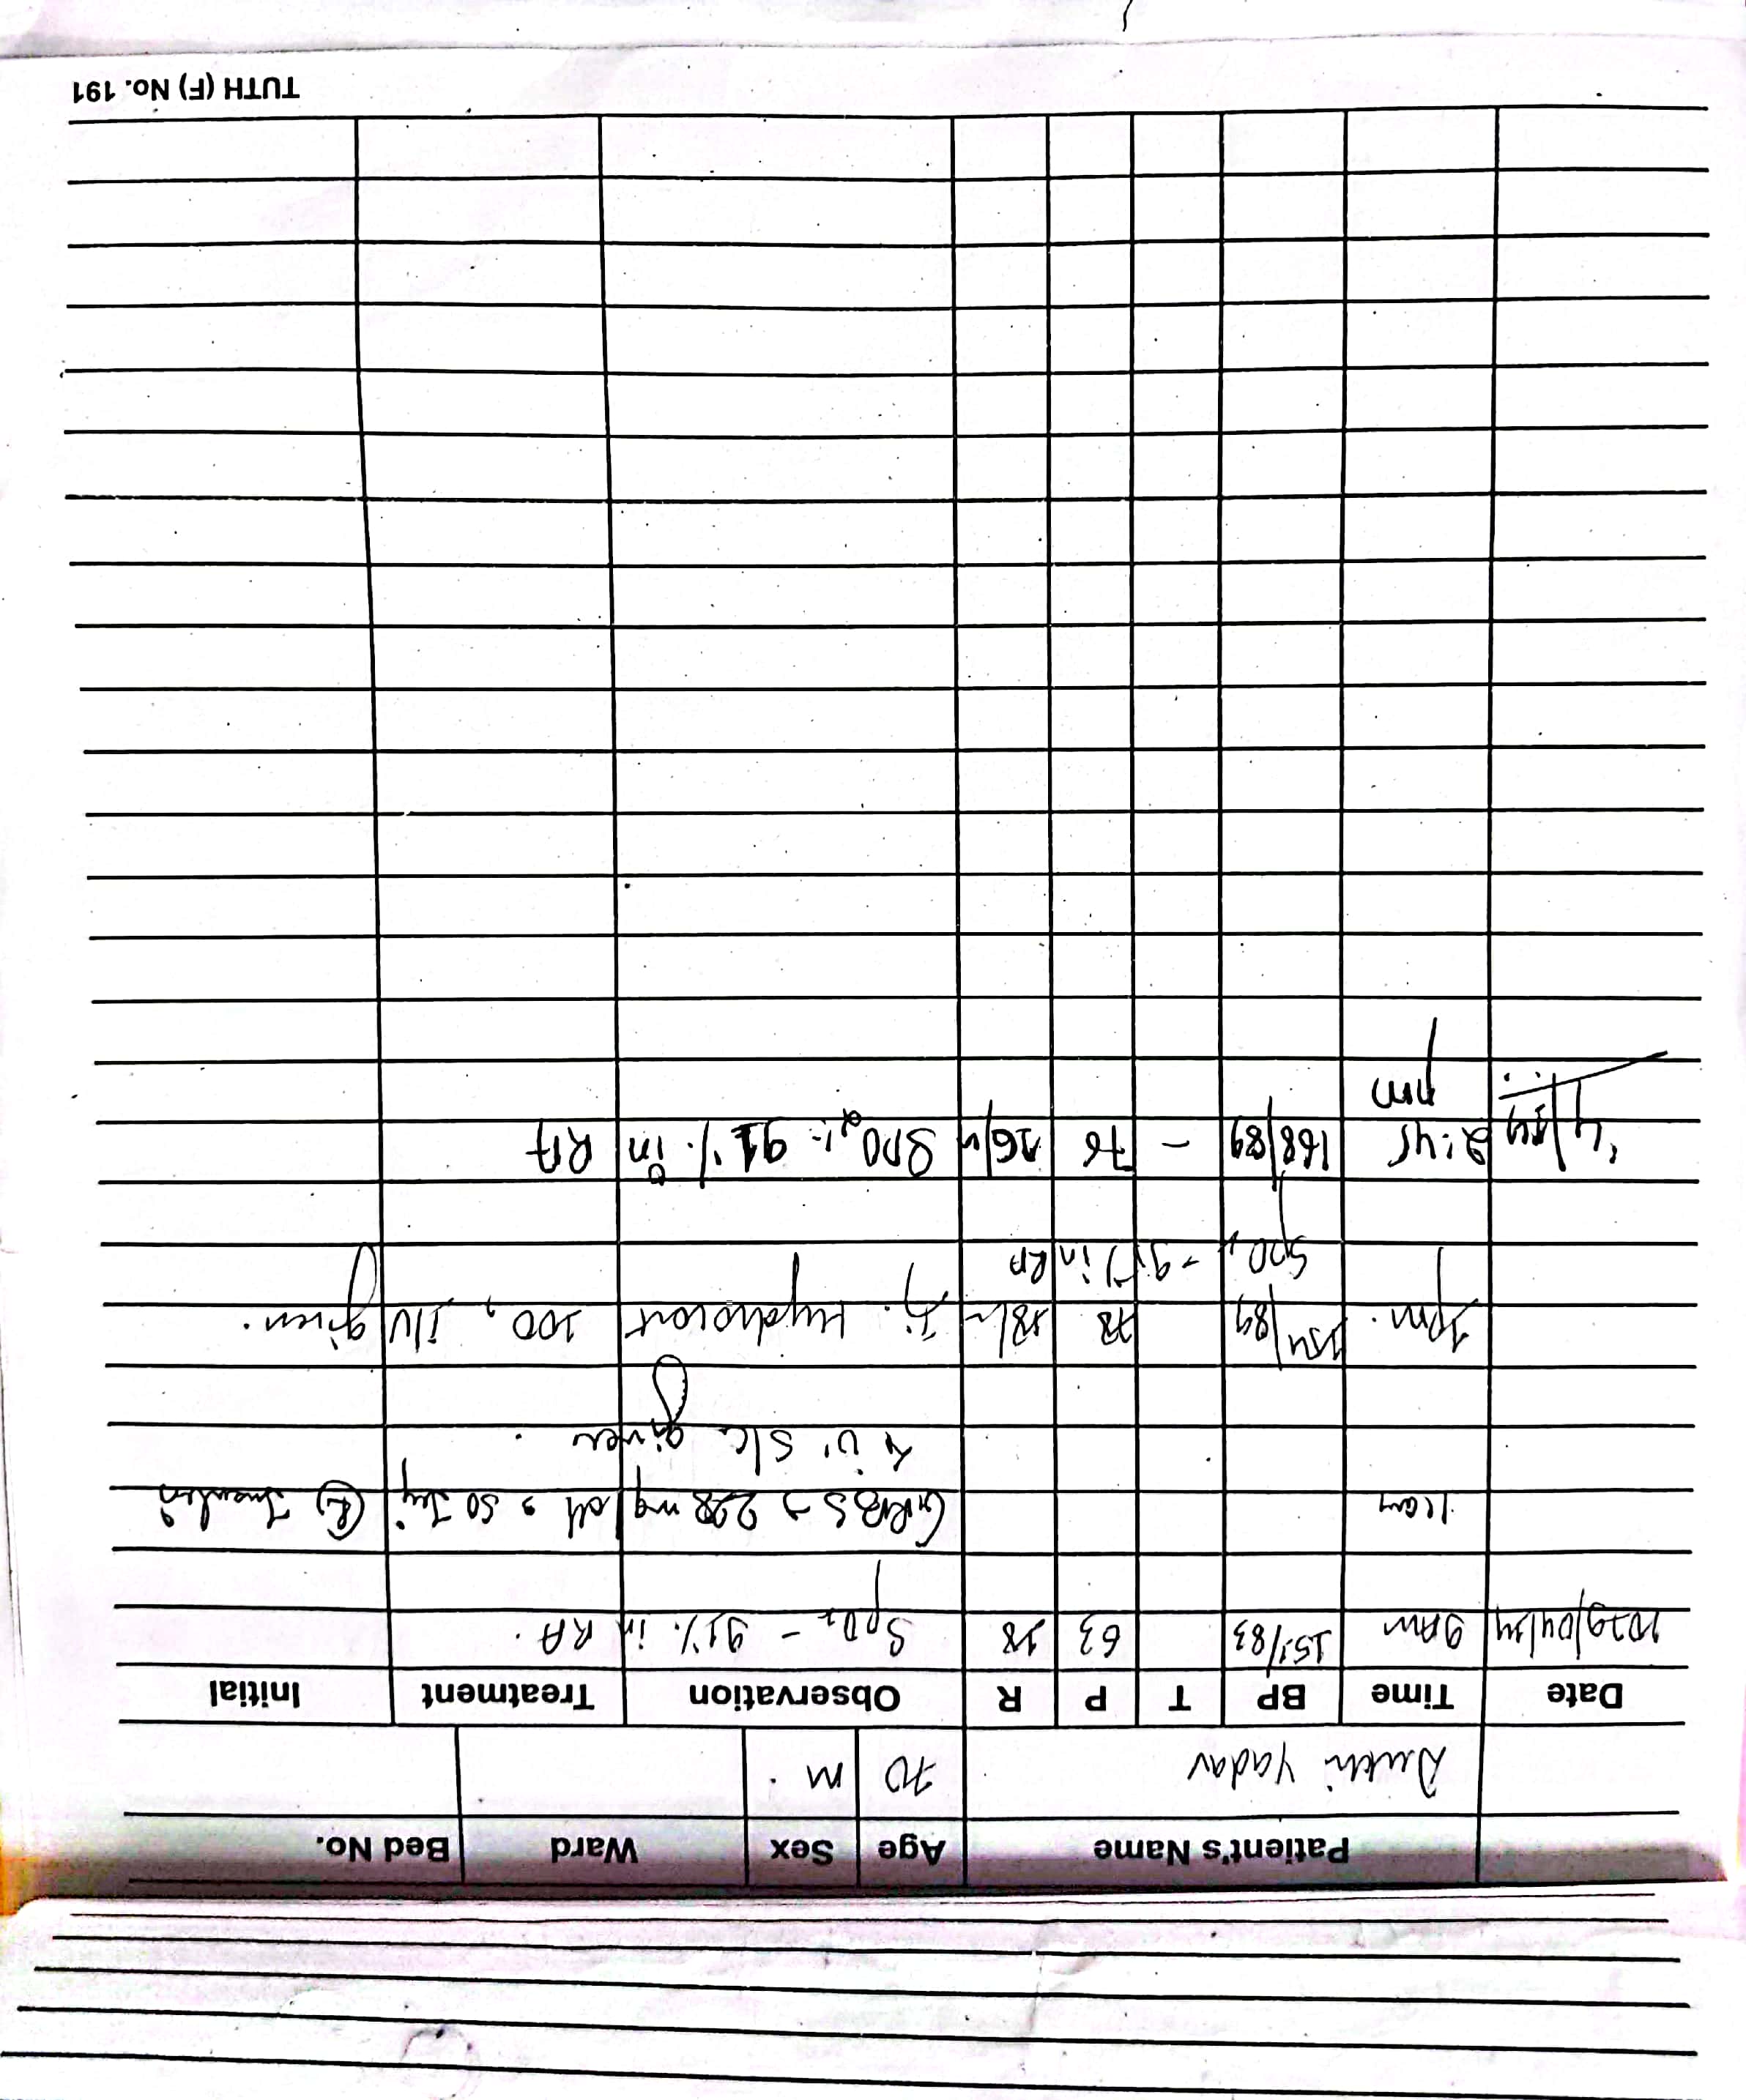 Patient's Name Age Sex Ward Bed No.
Yadav 70 M.
Date Time BP T P R Observation Treatment Initial
9AM 151/83 63 18 SpO2 - 91% in RA.
11am GRBS → 228 mg/dl, Inj (R) Insulin
S/C given.
1pm. 154/89 78 18/ Inj. Hydrocort 100, I/V given.
SpO2 in RA
2:45 168/89 - 76 16/ SPO2 :- 91% in RA
pm
TUTH (F) No. 191